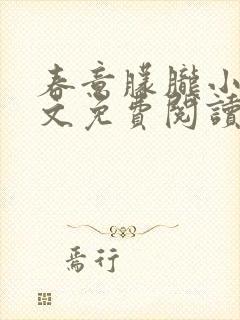 春意朦朧小
文免費閱讀
焉行